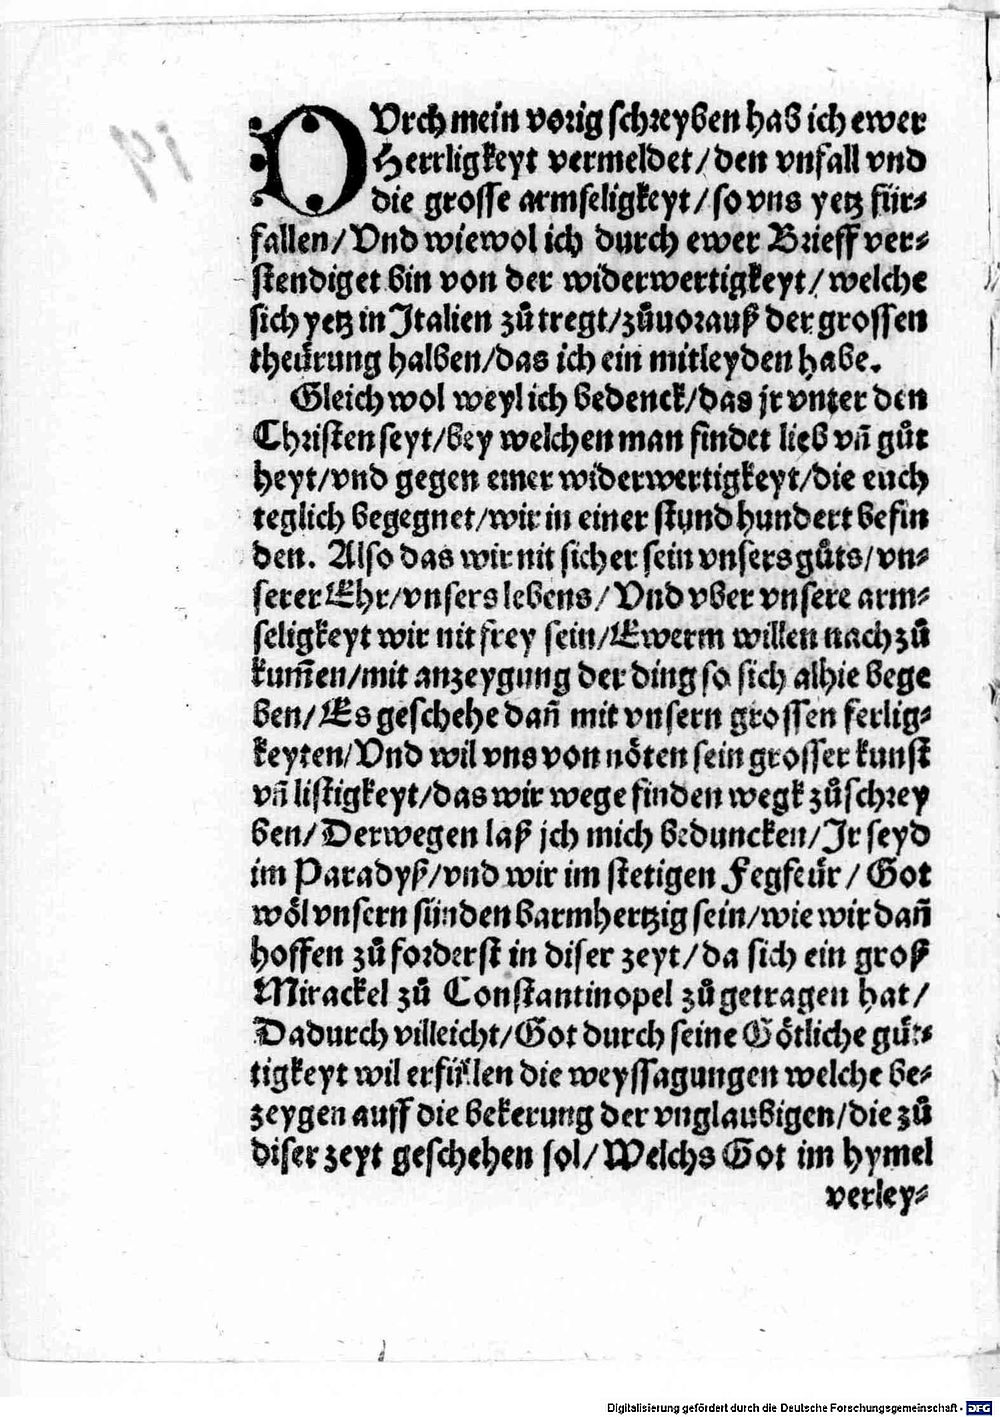 DUrch mein vorig schreyben hab ich ewer
Herrligkeyt vermeldet/den vnfall vnd
die grosse armseligkeyt/so vns yetz für⸗
fallen/Vnd wiewol ich durch ewer Brieff ver⸗
stendiget bin von der widerwertigkeyt/welche
sich yetz in Italien zů tregt/zůuorauß der grossen
theürung halben/das ich ein mitleyden habe.
Gleich wol weyl ich bedenck/das jr vnter den
Christen seyt/bey welchen man findet lieb vñ gůt
heyt/vnd gegen einer widerwertigkeyt/die euch
teglich begegnet/wir in einer stund hundert befin
den. Also das wir nit sicher sein vnsers gůts/vn⸗
serer Ehr/vnsers lebens/Vnd vber vnsere arm⸗
seligkeyt wir nit frey sein/Ewerm willen nach zů
kum̃en/mit anzeygung der ding so sich alhie bege
ben/Es geschehe dañ mit vnsern grossen ferlig⸗
keyten/Vnd wil vns von nöten sein grosser kunst
vñ listigkeyt/das wir wege finden wegk zůschrey
ben/Derwegen laß jch mich beduncken/Jr seyd
im Paradyß/vnd wir im stetigen Fegfeür/Got
wöl vnsern sünden barmhertzig sein/wie wir dañ
hoffen zů forderst in diser zeyt/da sich ein groß
Mirackel zů Constantinopel zů getragen hat/
Dadurch villeicht/Got durch seine Götliche güt⸗
tigkeyt wil erfüllen die weyssagungen welche be⸗
zeygen auff die bekerung der vnglaubigen/die zů
diser zeyt geschehen sol/Welchs Got im hymel
verley⸗
Digitalisierung gefördert durch die Deutsche Forschungsgemeinschaft - DFG